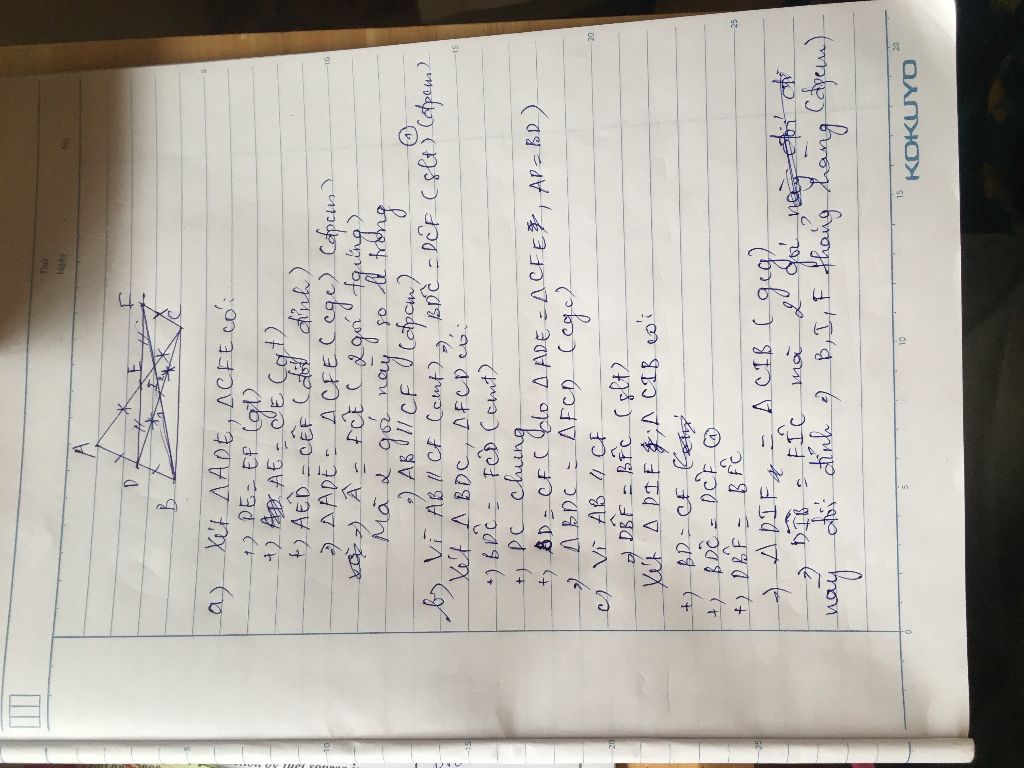 Thứ
Ngày
No.
A
D
E
F
I
B
C
a) Xét ΔADE, ΔCFE có:
+) DE = EF (gt)
+) AE = CE (gt)
+) AÊD = CÊF (đối đỉnh)
=) ΔADE = ΔCFE (cgc) (đpcm)
=) Â = FĈE (2 góc tương ứng)
Mà 2 góc này so le trong
=) AB // CF (đpcm)
b) Vì AB // CF (cmt) =) BD̂C = DĈF (slt) ①
Xét ΔBDC, ΔFCD có: (đpcm)
+) BD̂C = FĈD (cmt)
+) DC chung
+) BD = CF (do ΔADE = ΔCFE, AD = BD)
=) ΔBDC = ΔFCD (cgc)
c) Vì AB // CF
=) DB̂F = BF̂C (slt)
Xét ΔDIF; ΔCIB có:
+) BD = CF
+) BD̂C = DĈF ①
+) DB̂F = BF̂C
=) ΔDIF = ΔCIB (gcg)
=) DÎB = FÎC mà 2 góc
này đối đỉnh =) B, I, F thẳng hàng (đpcm)
KOKUYO
5
10
15
20
25
0
5
10
15
20
5
10
15
20
25